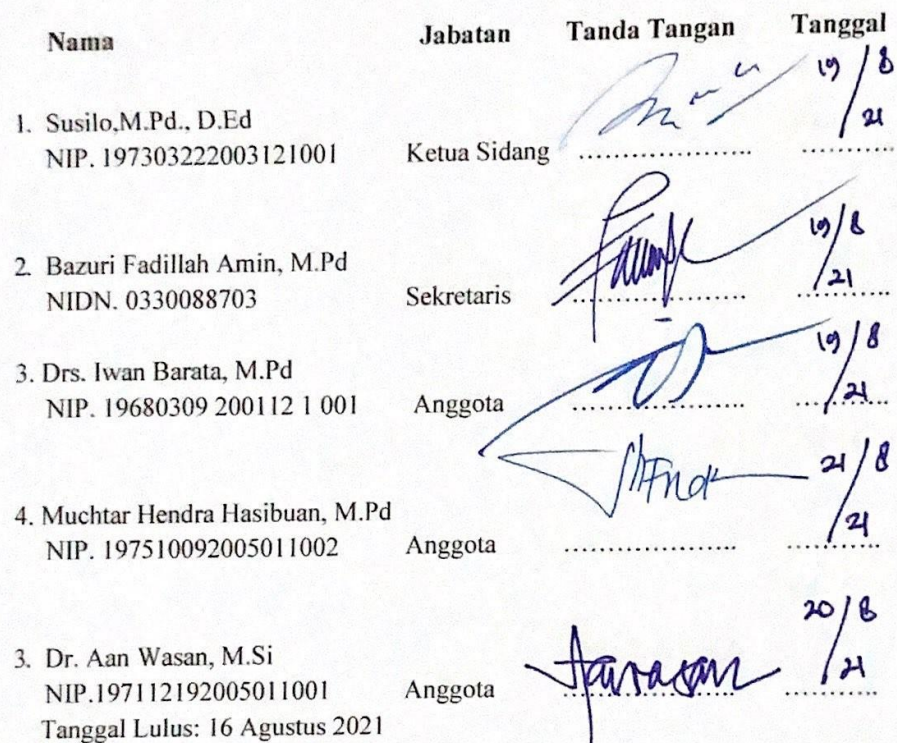 Nama Jabatan Tanda Tangan Tanggal
1. Susilo,M.Pd., D.Ed 19/8
NIP. 197303222003121001 Ketua Sidang .................. /21 ..........
2. Bazuri Fadillah Amin, M.Pd 19/8
NIDN. 0330088703 Sekretaris .................. /21 ..........
3. Drs. Iwan Barata, M.Pd 19/8
NIP. 19680309 200112 1 001 Anggota .................. /21 ..........
4. Muchtar Hendra Hasibuan, M.Pd 21/8
NIP. 197510092005011002 Anggota .................. /21 ..........
3. Dr. Aan Wasan, M.Si 20/8
NIP.197112192005011001 Anggota .................. /21 ..........
Tanggal Lulus: 16 Agustus 2021